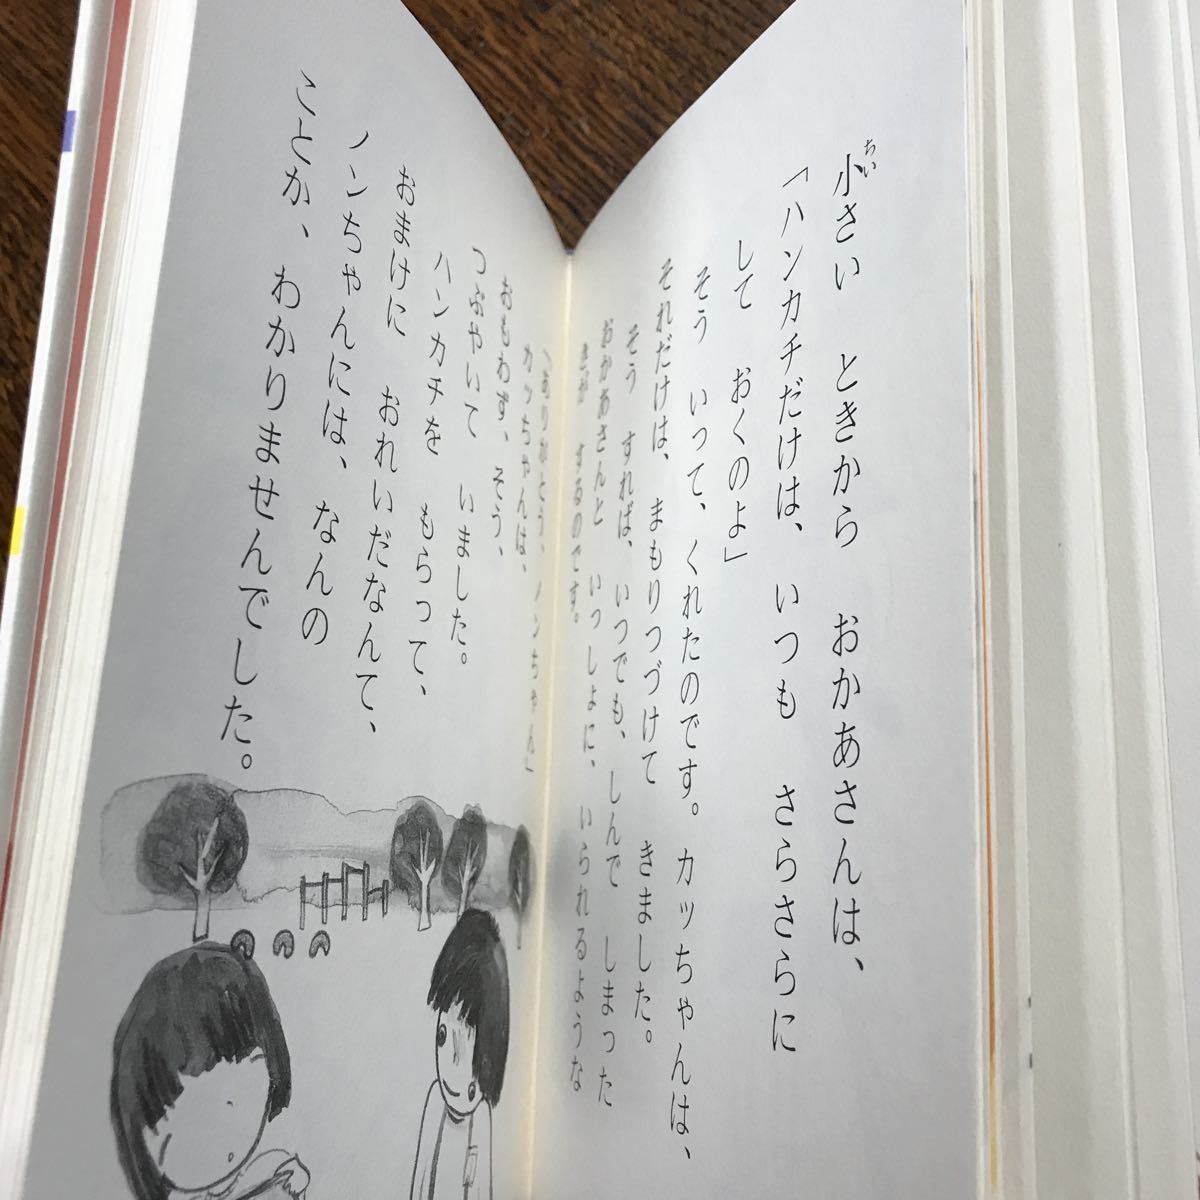 小さい ときから おかあさんは、
ちい
「ハンカチだけは、いつも さらさらに
して おくのよ」
そう いって、くれたのです。カッちゃんは、
それだけは、まもりつづけて きました。
そう すれば、いつでも、しんで しまった
おかあさんと いっしょに、いられるような
きが するのです。
「ありがとう、ノンちゃん」
カッちゃんは、
おもわず、そう、
つぶやいて いました。
ハンカチを もらって、
おまけに おれいだなんて、
ノンちゃんには、なんの
ことか、わかりませんでした。